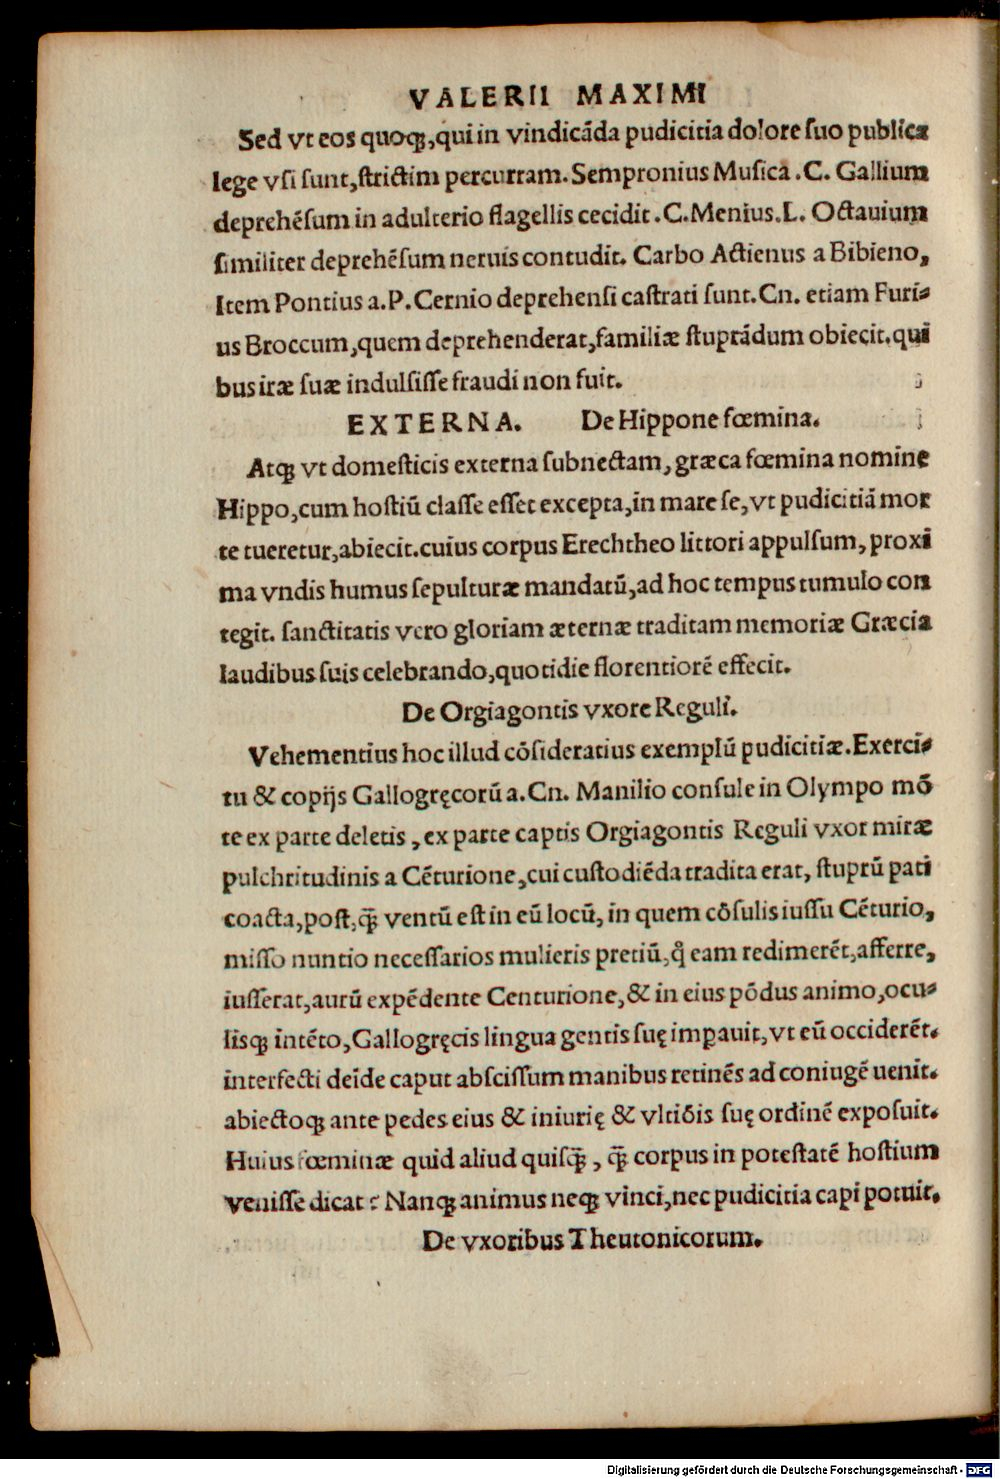 VALERII MAXIMI
Sed vt eos quoqꝫ, qui in vindicāda pudicitia dolore ſuo publica
lege vſi ſunt, ſtrictim percurram. Sempronius Muſica .C. Gallium
deprehēſum in adulterio flagellis cecidit .C. Menius. L. Octauium
ſimiliter deprehēſum neruis contudit. Carbo Actienus a Bibieno,
Item Pontius a. P. Cernio deprehenſi caſtrati ſunt. Cn. etiam Furi⸗
us Broccum, quem deprehenderat, familiæ ſtuprādum obiecit. qui
bus iræ ſuæ indulſiſſe fraudi non fuit.
EXTERNA. De Hippone fœmina.
Atqꝫ vt domeſticis externa ſubnectam, græca fœmina nomine
Hippo, cum hoſtiū claſſe eſſet excepta, in mare ſe, vt pudicitiā mor
te tueretur, abiecit. cuius corpus Erechtheo littori appulſum, proxi
ma vndis humus ſepulturæ mandatū, ad hoc tempus tumulo con
tegit. ſanctitatis vero gloriam æternæ traditam memoriæ Græcia
laudibus ſuis celebrando, quotidie florentiorē effecit.
De Orgiagontis vxore Reguli.
Vehementius hoc illud cōſideratius exemplū pudicitiæ. Exerci⸗
tu & copijs Gallogręcorū a. Cn. Manilio conſule in Olympo mō
te ex parte deletis, ex parte captis Orgiagontis Reguli vxor miræ
pulchritudinis a Cēturione, cui cuſtodiēda tradita erat, ſtuprū pati
coacta, poſt, qꝫ̄ ventū eſt in eū locū, in quem cōſulis iuſſu Cēturio,
miſſo nuntio neceſſarios mulieris pretiū, qͦ eam redimerēt, afferre,
iuſſerat, aurū expēdente Centurione, & in eius pōdus animo, ocu⸗
liſqꝫ intēto, Gallogręcis lingua gentis ſuę impauit, vt eū occiderēt.
interfecti deīde caput abſciſſum manibus retinēs ad coniugē uenit.
abiectoqꝫ ante pedes eius & iniurię & vltiōis ſuę ordinē expoſuit.
Huius fœminæ quid aliud quiſqꝫ̄, qꝫ̄ corpus in poteſtatē hoſtium
veniſſe dicat? Nanqꝫ animus neqꝫ vinci, nec pudicitia capi potuit.
De vxoribus Theutonicorum.
Digitalisierung gefördert durch die Deutsche Forschungsgemeinschaft - DFG